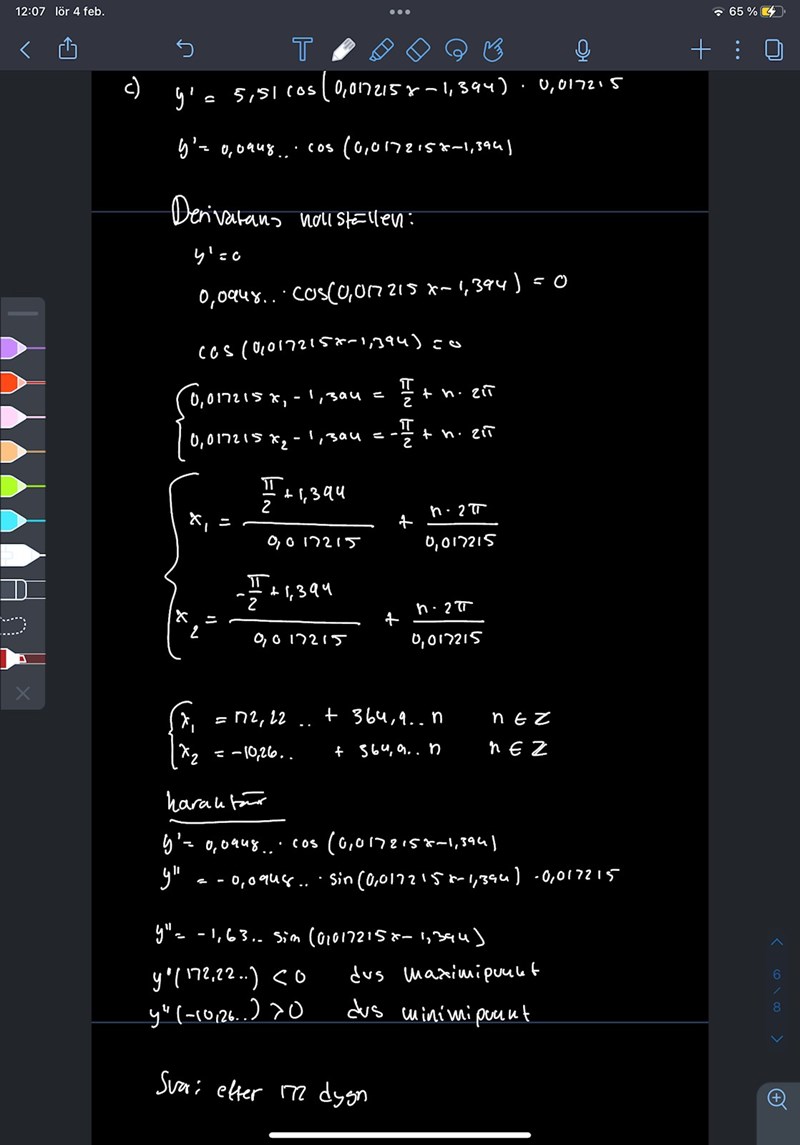 12:07 lör 4 feb.
65 %
c) y' = 5,51 cos(0,017215x-1,394) · 0,017215
y' = 0,0948.. · cos(0,017215x-1,394)
Derivatans nollställen:
y' = 0
0,0948.. · cos(0,017215x-1,394) = 0
cos(0,017215x-1,394) = 0
0,017215x₁ - 1,394 = π/2 + n · 2π
0,017215x₂ - 1,394 = -π/2 + n · 2π
x₁ = (π/2 + 1,394)/0,017215 + (n · 2π)/0,017215
x₂ = (-π/2 + 1,394)/0,017215 + (n · 2π)/0,017215
x₁ = 172,22 .. + 364,9.. n n ∈ Z
x₂ = -10,26.. + 364,9.. n n ∈ Z
karaktär
y' = 0,0948.. · cos(0,017215x-1,394)
y'' = -0,0948.. · sin(0,017215x-1,394) · 0,017215
y'' = -1,63.. sin(0,017215x-1,394)
y''(172,22..) < 0 dvs maximipunkt
y''(-10,26..) > 0 dvs minimipunkt
Svar: efter 172 dygn
6
/
8